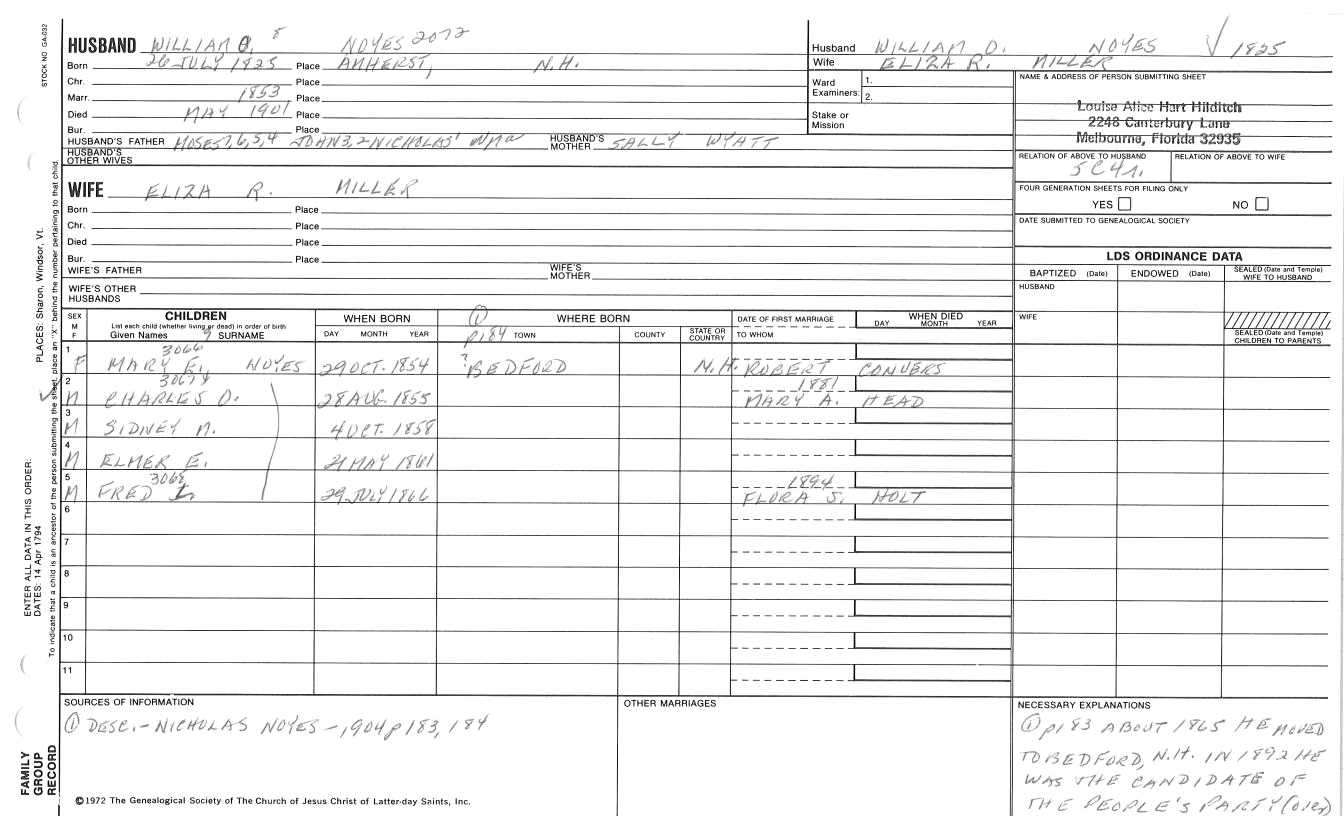 STOCK NO. GA-032
HUSBAND WILLIAM O. 8 NOYES 2072
Born 26 JULY 1825 Place AMHERST, N.H.
Chr. Place
Marr. 1853 Place
Died MAY 1901 Place
Bur. Place
HUSBAND'S FATHER MOSES 7,6,5,4 JOHN 3,2 NICHOLAS' WM HUSBAND'S MOTHER SALLY WYATT
HUSBAND'S OTHER WIVES
WIFE ELIZA R. MILLER
Born Place
Chr. Place
Died Place
Bur. Place
WIFE'S FATHER WIFE'S MOTHER
WIFE'S OTHER HUSBANDS
Husband WILLIAM O. NOYES √ 1825
Wife ELIZA R. MILLER
Ward Examiners: 1.
2.
Stake or Mission
NAME & ADDRESS OF PERSON SUBMITTING SHEET
Louise Alice Hart Hilditch
2248 Canterbury Lane
Melbourne, Florida 32935
RELATION OF ABOVE TO HUSBAND RELATION OF ABOVE TO WIFE
5C4r.
FOUR GENERATION SHEETS FOR FILING ONLY
YES NO
DATE SUBMITTED TO GENEALOGICAL SOCIETY
LDS ORDINANCE DATA
BAPTIZED (Date) ENDOWED (Date) SEALED (Date and Temple) WIFE TO HUSBAND
HUSBAND
WIFE
SEALED (Date and Temple) CHILDREN TO PARENTS
SEX M F
CHILDREN
List each child (whether living or dead) in order of birth
Given Names 9 SURNAME
WHEN BORN
DAY MONTH YEAR
① WHERE BORN
p.184 TOWN COUNTY STATE OR COUNTRY
DATE OF FIRST MARRIAGE
TO WHOM
WHEN DIED
DAY MONTH YEAR
1 3066
F MARY E. NOYES 29 OCT. 1854 ? BEDFORD N.H. ROBERT CONVERS
2 3067 1881
M CHARLES O. 28 AUG. 1855 MARY A. HEAD
3
M SIDNEY M. 4 OCT. 1858
4
M ELMER E. 21 MAY 1861
5 3068 1894
M FRED L. 29 JULY 1866 FLORA S. HOLT
6
7
8
9
10
11
SOURCES OF INFORMATION
① DESC. - NICHOLAS NOYES - 1904 p 183, 184
OTHER MARRIAGES
NECESSARY EXPLANATIONS
① p183 ABOUT 1865 HE MOVED
TO BEDFORD, N.H. IN 1892 HE
WAS THE CANDIDATE OF
THE PEOPLE'S PARTY (over)
©1972 The Genealogical Society of The Church of Jesus Christ of Latter-day Saints, Inc.
FAMILY
GROUP
RECORD
ENTER ALL DATA IN THIS ORDER:
DATES: 14 Apr 1794
PLACES: Sharon, Windsor, Vt.
To indicate that a child is an ancestor of the person submitting the sheet, place an "X" behind the number pertaining to that child.